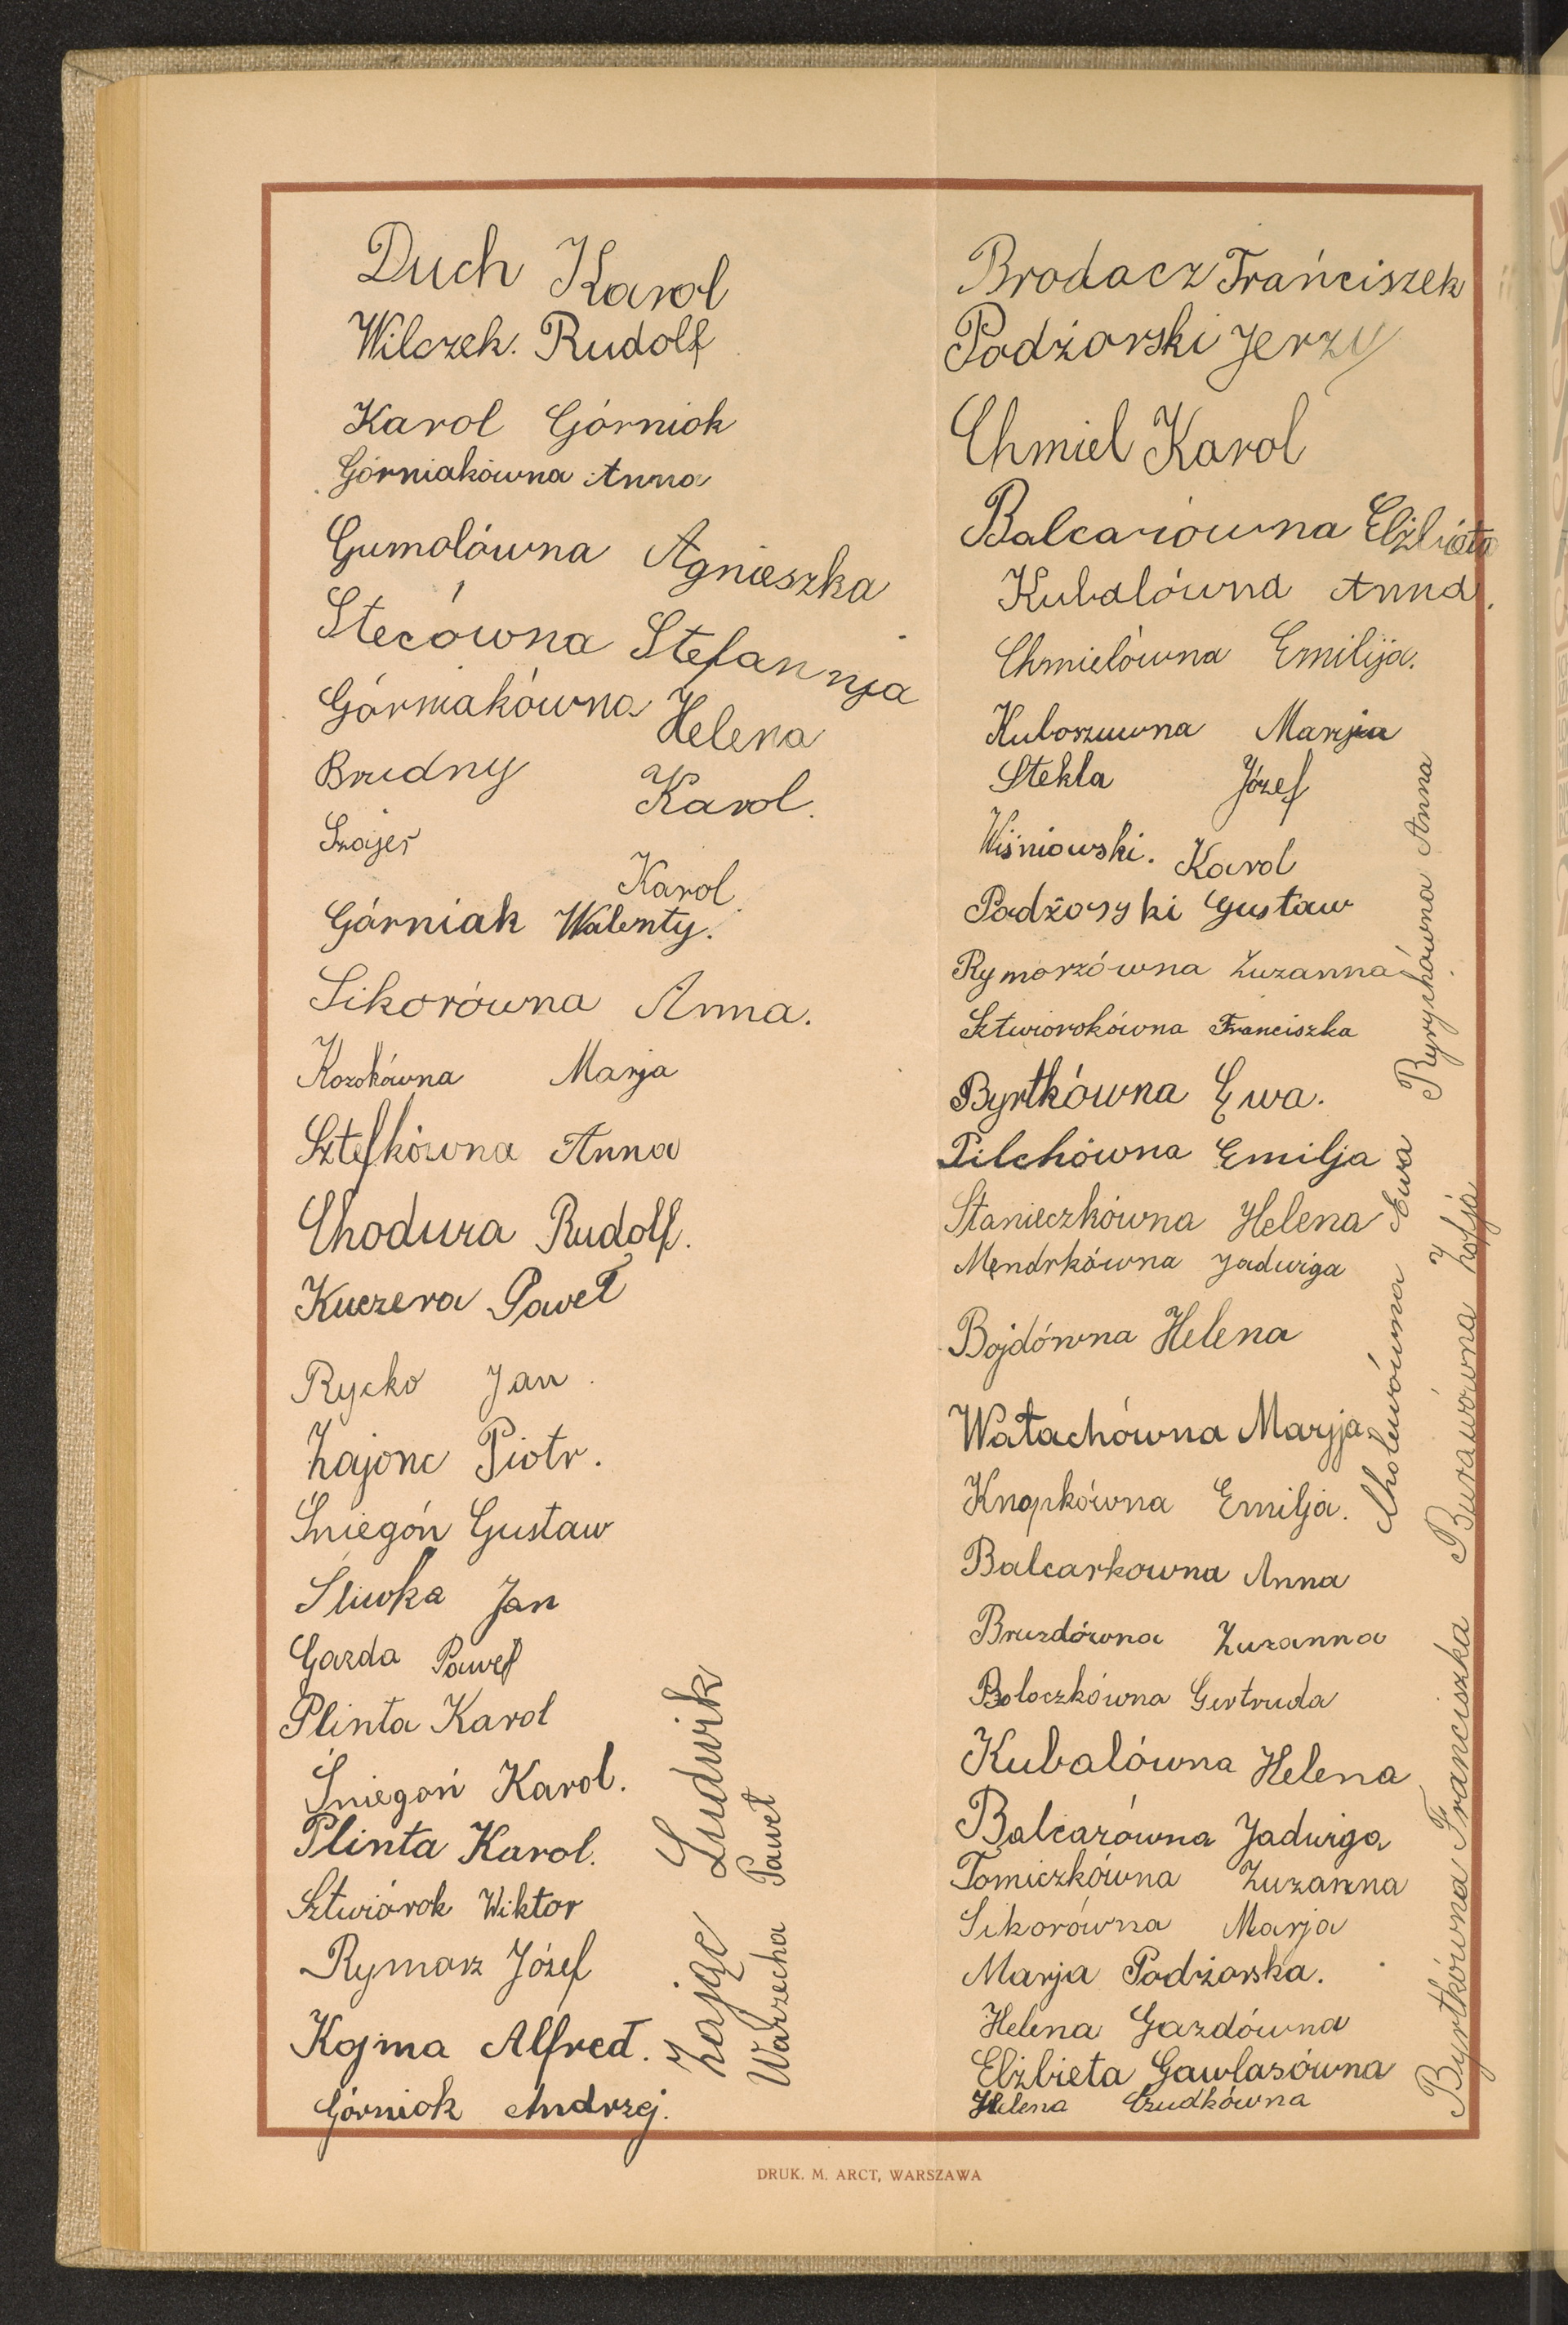 Duch Karol
Wilczek. Rudolf
Karol Górniok
Górniakówna Anna
Gumolówna Agnieszka
Stecówna Stefannja
Górniakówna Helena
Brudny Karol.
Szajer Karol
Górniak Walenty.
Sikorówna Anna.
Kozokówna Marja
Sztefkówna Anna
Chodura Rudolf.
Kuczera Paweł
Rycko Jan
Zajonc Piotr.
Śniegón Gustaw
Śliwka Jan
Gazda Paweł
Plinta Karol
Śniegoń Karol.
Plinta Karol.
Sztwiórok Wiktor
Rymarz Józef
Kojma Alfred.
Górniok Andrzej.
Zając Ludwik
Warzecha Paweł
Brodacz Frańciszek
Podżorski Jerzy
Chmiel Karol
Balcarówna Elżbieta
Kubalówna Anna.
Chmielówna Emilija.
Kuboszuwna Marija
Stekla Józef
Wiśniowski. Karol
Podżorski Gustaw
Rymorzówna Zuzanna
Sztwiorokówna Franciszka
Byrtkówna Ewa.
Pilchówna Emilja
Stanieczkówna Helena
Mendrkówna Jadwiga
Bojdówna Helena
Watachówna Marjja
Knopkówna Emilja.
Balcarkowna Anna
Bruzdówna Zuzanna
Boloczkówna Gertruda
Kubalówna Helena
Balcarówna Jadwiga
Tomiczkówna Zuzanna
Sikorówna Marja
Marja Podżorska.
Helena Gazdówna
Elżbieta Gawlasówna
Helena Czudkówna
Cholewówna Ewa
Ryrychówna Anna
Byrtkówna Franciszka
Burawówna Zofja
DRUK. M. ARCT, WARSZAWA